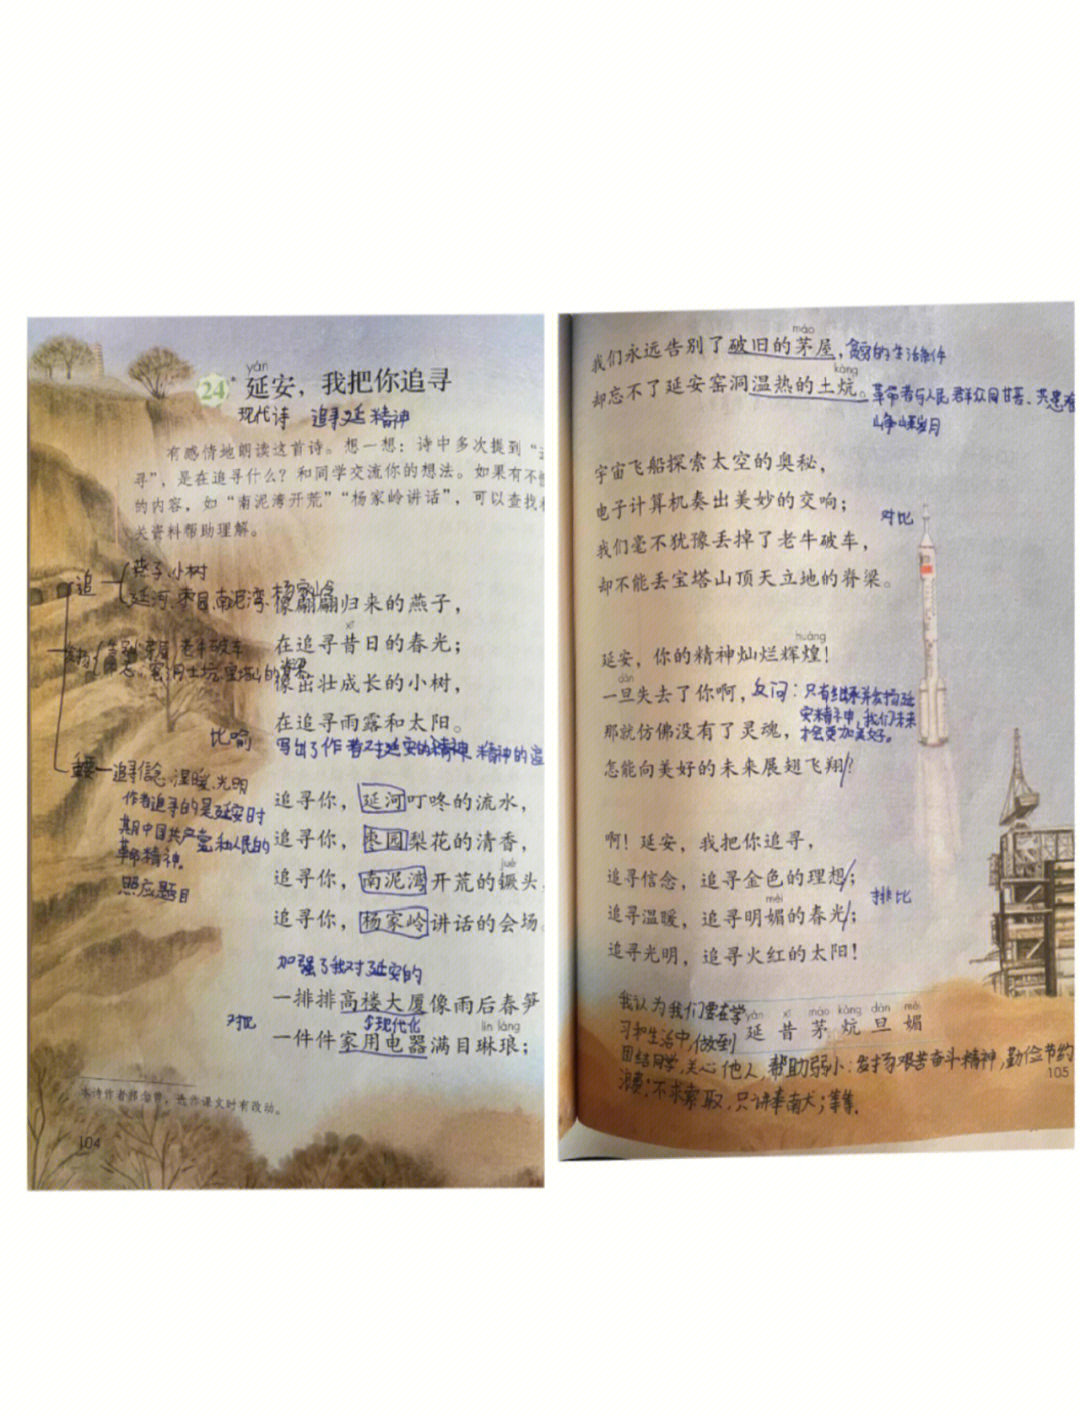 yán
24* 延安，我把你追寻
现代诗 追寻延 精神
有感情地朗读这首诗。想一想：诗中多次提到“
寻”，是在追寻什么？和同学交流你的想法。如果有不
的内容，如“南泥湾开荒”“杨家岭讲话”，可以查找
关资料帮助理解。
追
燕子、小树
延河、枣园、南泥湾、杨家岭
像翩翩归来的燕子，
xī
在追寻昔日的春光；
老牛破车
窑洞土炕、宝塔山的脊梁
像茁壮成长的小树，
在追寻雨露和太阳。
比喻
写出了作者对延安的精神 精神的追
重要
追寻信念、温暖、光明
作者追寻的是延安时
期中国共产党和人民的
革命精神。
照应题目
追寻你，延河叮咚的流水，
追寻你，枣园梨花的清香，
jué
追寻你，南泥湾开荒的镢头，
追寻你，杨家岭讲话的会场。
加强了我对延安的
一排排高楼大厦像雨后春笋
对比
现代化
lín láng
一件件家用电器满目琳琅；
本诗作者祁念曾，选作课文时有改动。
104
máo
我们永远告别了破旧的茅屋，
贫穷的生活条件
kàng
却忘不了延安窑洞温热的土炕。
革命者与人民群众同甘苦、共患难
峥嵘岁月
宇宙飞船探索太空的奥秘，
电子计算机奏出美妙的交响；
对比
我们毫不犹豫丢掉了老牛破车，
却不能丢宝塔山顶天立地的脊梁。
huáng
延安，你的精神灿烂辉煌！
dàn
一旦失去了你啊，
反问：只有继承并发扬延
安精神，我们未来
才会更加美好。
那就仿佛没有了灵魂，
怎能向美好的未来展翅飞翔？
啊！延安，我把你追寻，
追寻信念，追寻金色的理想；
排比
mèi
追寻温暖，追寻明媚的春光；
追寻光明，追寻火红的太阳！
yán xī máo kàng dàn mèi
延 昔 茅 炕 旦 媚
我认为我们要在学
习和生活中，做到
团结同学，关心他人，帮助弱小；发扬艰苦奋斗精神，勤俭节约
浪费；不求索取，只讲奉献；等等。
105